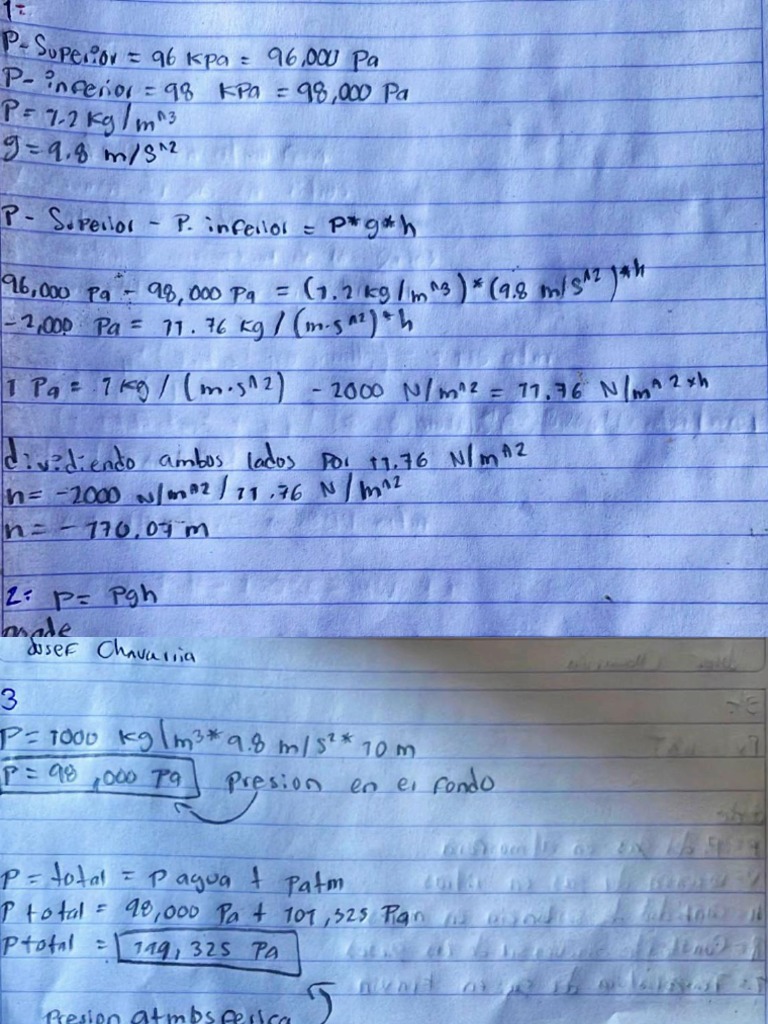 1:
P- Superior = 96 Kpa = 96,000 Pa
P- inferior = 98 KPa = 98,000 Pa
P = 1.2 Kg/m^3
g = 9.8 m/s^2
P - Superior - P. inferior = P*g*h
96,000 Pa - 98,000 Pa = (1.2 kg/m^3)*(9.8 m/s^2)*h
-2,000 Pa = 11.76 Kg/(m·s^2)*h
1 Pa = 1 Kg/(m·s^2) - 2000 N/m^2 = 11.76 N/m^2*h
dividiendo ambos lados por 11.76 N/m^2
h = -2000 N/m^2 / 11.76 N/m^2
h = -170.07 m
2: P = Pgh
Josef Chavarria
3
P = 1000 kg/m³* 9.8 m/s²* 10 m
P = 98,000 Pa presion en el fondo
P = total = P agua + Patm
P total = 98,000 Pa + 101,325 Pa
P total = 199,325 Pa
Presion atmosferica